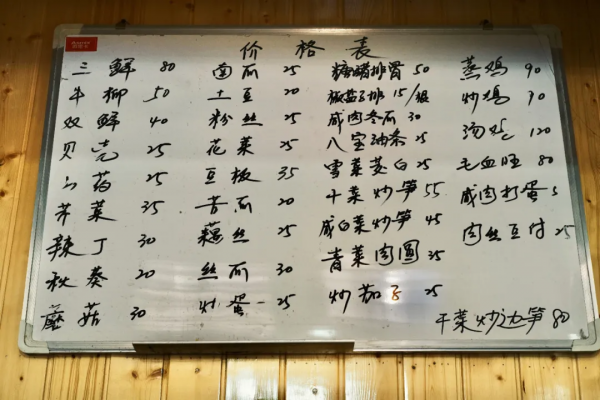 价格表
三鲜 80
牛柳 50
双鲜 40
贝壳 25
山药 25
茅菜 35
辣丁 30
秋葵 20
蘑菇 30
南瓜 25
土豆 20
粉丝 25
花菜 25
豆板 35
苦瓜 20
藕丝 25
丝瓜 30
炒蛋 25
糖醋排骨 50
椒盐子排 15/根
咸肉冬瓜 30
八宝油条 25
雪菜茭白 25
干菜炒笋 55
咸白菜炒笋 45
青菜肉圆 25
炒茄子 25
蒸鸡 90
炒鸡 90
汤 120
毛血旺 80
咸肉打蛋 5
肉丝豆付 25
干菜炒边笋 80